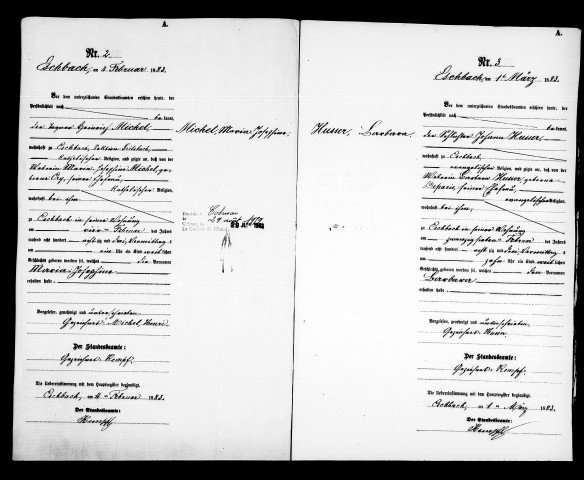 A.
Nr. 2
Eschbach, am 4 Februar 1883.
Vor dem unterzeichneten Standesbeamten erschien heute, der
Persönlichkeit nach
be kannt,
Heinrich Michel,
wohnhaft zu Eschbach,
katholischer Religion, und zeigte an, daß von der
Maria Josephina Michel, ge
seiner Ehefrau
katholischer Religion,
wohnhaft bei ihm,
zu Eschbach in seiner Wohnung
am Februar des Jahres
tausend acht hundert achtzig und drei, Vormittags
um Uhr ein Kind weib lichen
Geschlechts geboren worden sei, welches die Vornamen
Maria Josephina
erhalten habe.
Vorgelesen, genehmigt und unterschrieben
Gezeichnet Michel, Henri
Der Standesbeamte:
Gezeichnet Kempf.
Die Uebereinstimmung mit dem Hauptregister beglaubigt.
Eschbach, am 4 Februar 1883.
Der Standesbeamte:
Kempf
Michel, Maria Josephina
Colmar
A.
Nr. 3
Eschbach, am 1 März 1883.
Vor dem unterzeichneten Standesbeamten erschien heute, der
Persönlichkeit nach
be kannt,
Johann Husser,
wohnhaft zu Eschbach,
evangelischer Religion, und zeigte an, daß von der
Barbara Husser, geborene
seiner Ehefrau,
evangelischer Religion,
wohnhaft bei ihm,
zu Eschbach in seiner Wohnung
am Februar des Jahres
tausend acht hundert achtzig und drei, Vormittags
um Uhr ein Kind weib lichen
Geschlechts geboren worden sei, welches den Vornamen
Barbara
erhalten habe.
Vorgelesen, genehmigt und unterschrieben
Gezeichnet
Der Standesbeamte:
Gezeichnet Kempf.
Die Uebereinstimmung mit dem Hauptregister beglaubigt.
Eschbach, am 1 März 1883.
Der Standesbeamte:
Kempf
Husser, Barbara